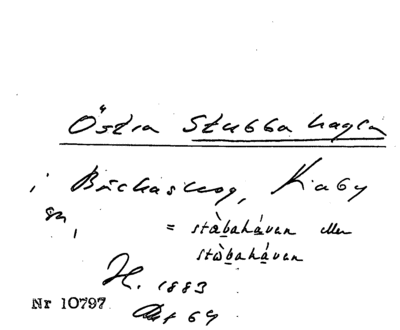 Östra Stubbahagen
i Bäckaskog, Kiaby
sn,
= stàbahávan eller
stàbahávan
H. 1883
Nr 10797